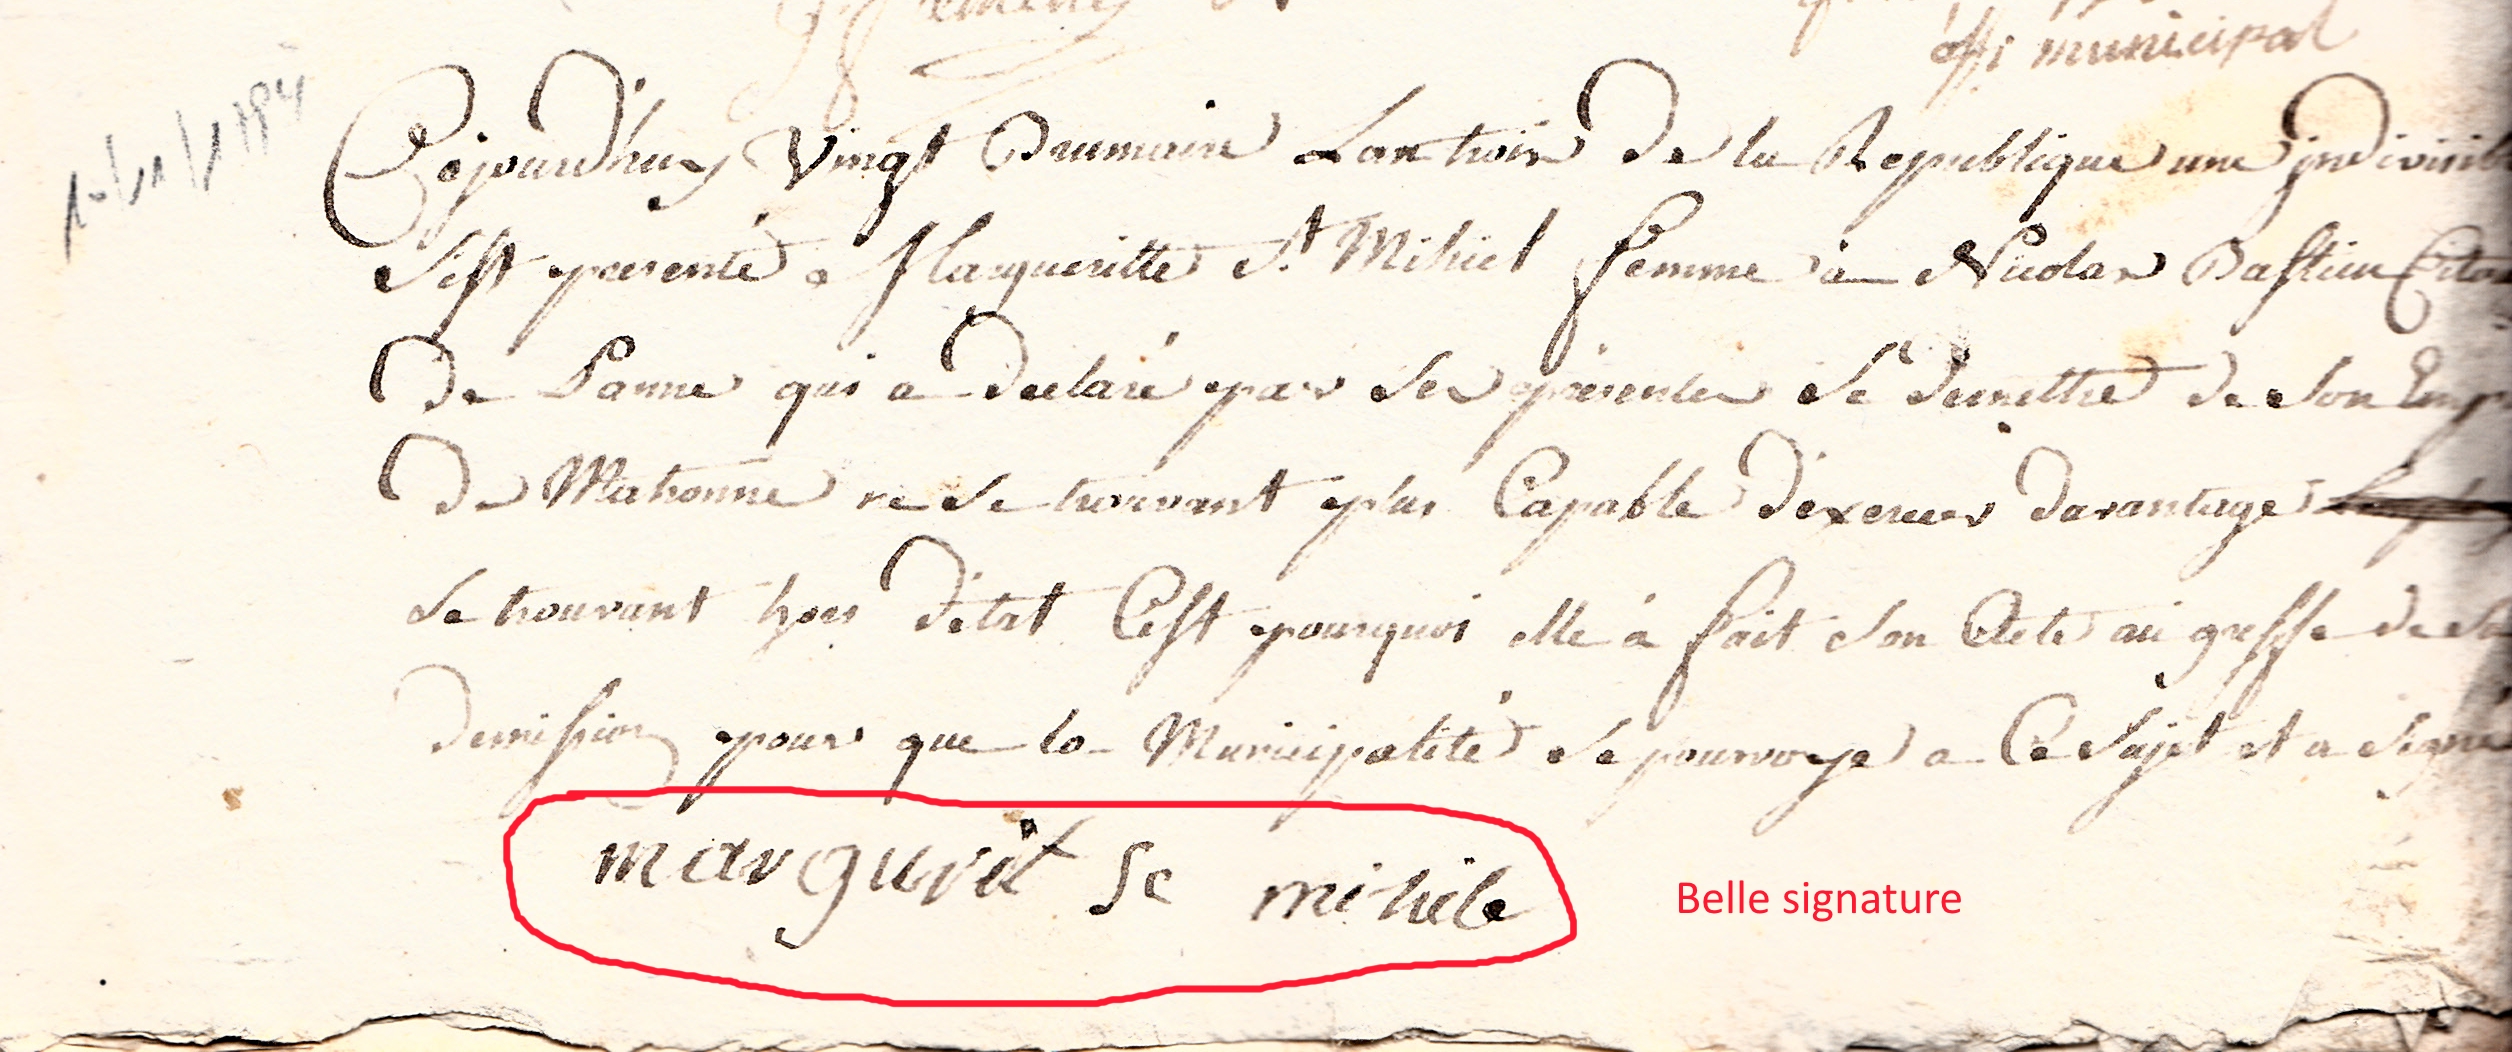 offi municipal
10/11/1794
Cejourd'huy vingt Brumaire Lan trois De la Republique une indivisib
S'est presenté a Margueritte St Mihiel femme à Nicolas Bastien Citoi
De Lanne qui a Declaré par Ses presentes Se Demettre de Son Emp
De Matronne ne Se trouvant plus Capable D'exercer Davantage
Se trouvant hors D'etat C'est pourquoi elle à fait Son Acte au greffe de Sa
Demission pour que la Municipalité Se pourvoye a Ce Sujet et a Signé
margurit St mihile
Belle signature